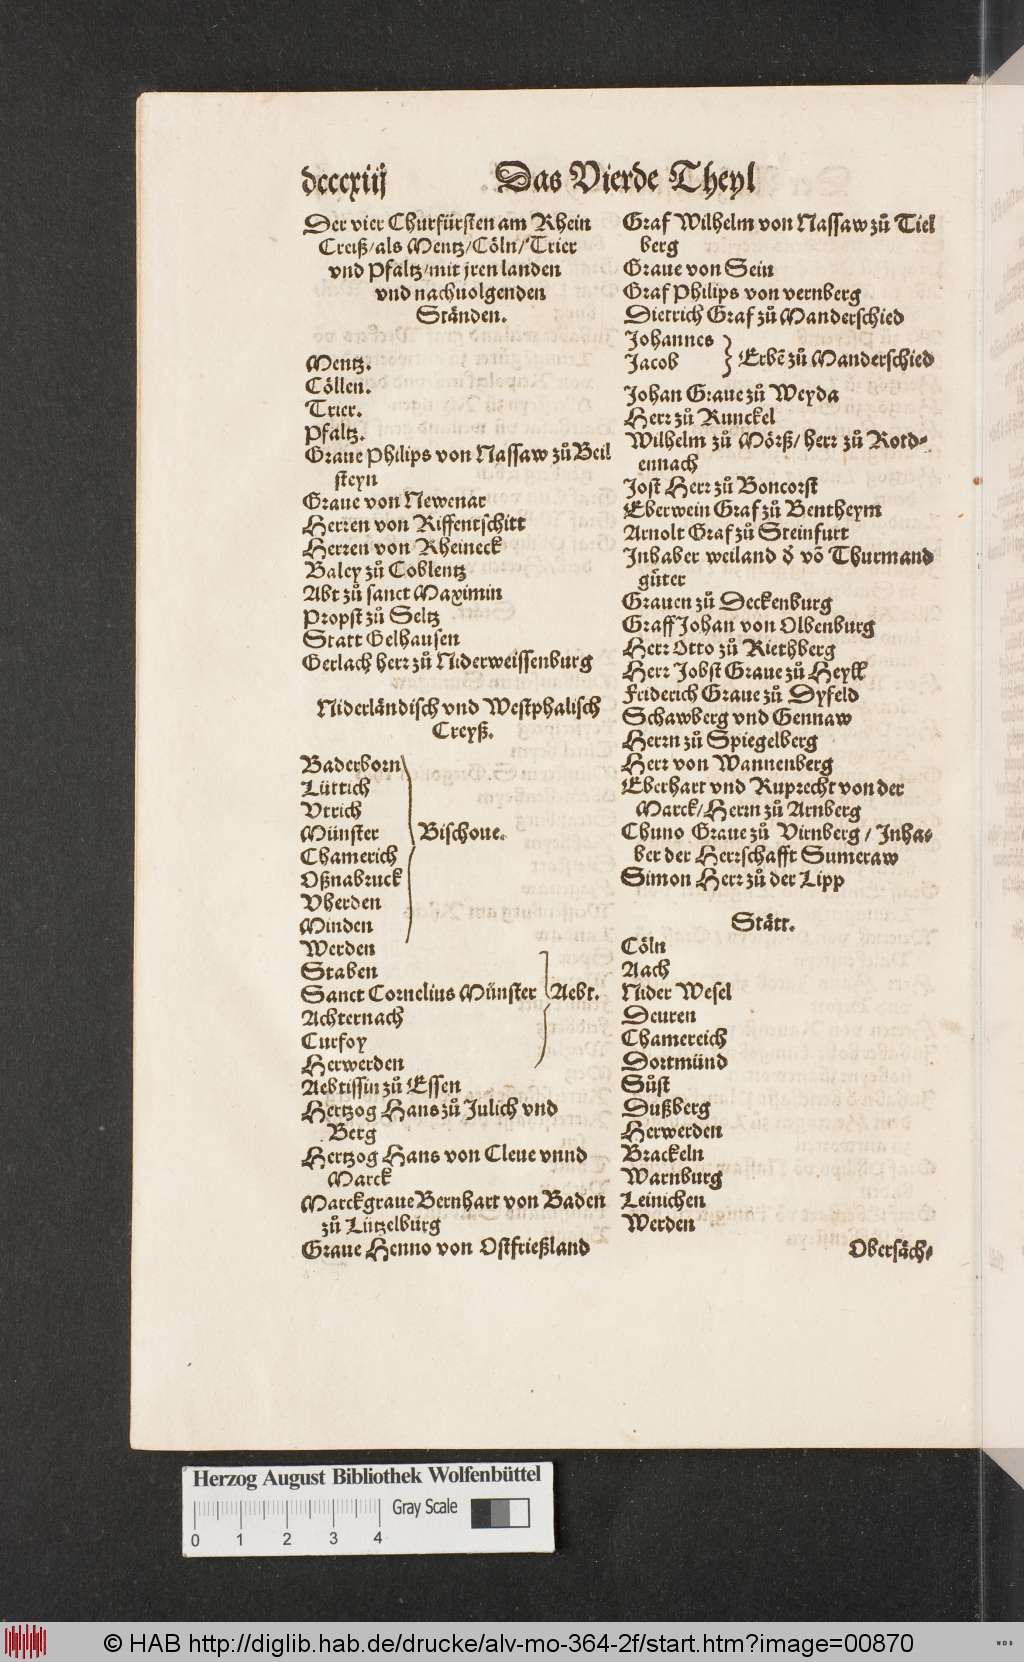 dcccxiij
Das Vierde Theyl
Der vier Churfürsten am Rhein
Creiß/als Mentz/Cöln/Trier
vnd Pfaltz/mit jren landen
vnd nachuolgenden
Ständen.
Mentz.
Cöllen.
Trier.
Pfaltz.
Graue Philips von Nassaw zů Beil
steyn
Graue von Newenar
Herren von Riffentschitt
Herren von Rheineck
Baley zů Coblentz
Abt zů sanct Maximin
Propst zů Seltz
Statt Gelhausen
Gerlach herr zů Niderweissenburg
Niderländisch vnd Westphalisch
Creyß.
Baderborn
Lüttich
Vtrich
Münster
Bischoue.
Chamerich
Oßnabruck
Vherden
Minden
Werden
Staben
Sanct Cornelius Münster
Aebt.
Achternach
Curfoy
Herwerden
Aebtissin zů Essen
Hertzog Hans zů Julich vnd
Berg
Hertzog Hans von Cleue vnnd
Marck
Marckgraue Bernhart von Baden
zů Lützelburg
Graue Henno von Ostfrießland
Graf Wilhelm von Nassaw zů Tiel
berg
Graue von Sein
Graf Philips von vernberg
Dietrich Graf zů Manderschied
Johannes
Jacob
Erbē zů Manderschied
Johan Graue zů Weyda
Herr zů Runckel
Wilhelm zů Mörß/ herr zů Rotd-
ennach
Jost Herr zů Boncorst
Eberwein Graf zů Bentheym
Arnolt Graf zů Steinfurt
Inhaber weiland d' võ Thurmand
güter
Grauen zů Deckenburg
Graff Johan von Olbenburg
Herr Otto zů Riethberg
Herr Jobst Graue zů Heyll
Friderich Graue zů Dyfeld
Schawberg vnd Gennaw
Herrn zů Spiegelberg
Herr von Wannenberg
Eberhart vnd Ruprecht von der
Marck/Herrn zů Arnberg
Chuno Graue zů Virnberg / Inha-
ber der Herrschafft Sumeraw
Simon Herr zů der Lipp
Stätt.
Cöln
Aach
Nider Wesel
Deuren
Chamereich
Dortmünd
Sůst
Dußberg
Herwerden
Brackeln
Warnburg
Leinichen
Werden
Obersäch-
Herzog August Bibliothek Wolfenbüttel
Gray Scale
0 1 2 3 4
© HAB http://diglib.hab.de/drucke/alv-mo-364-2f/start.htm?image=00870